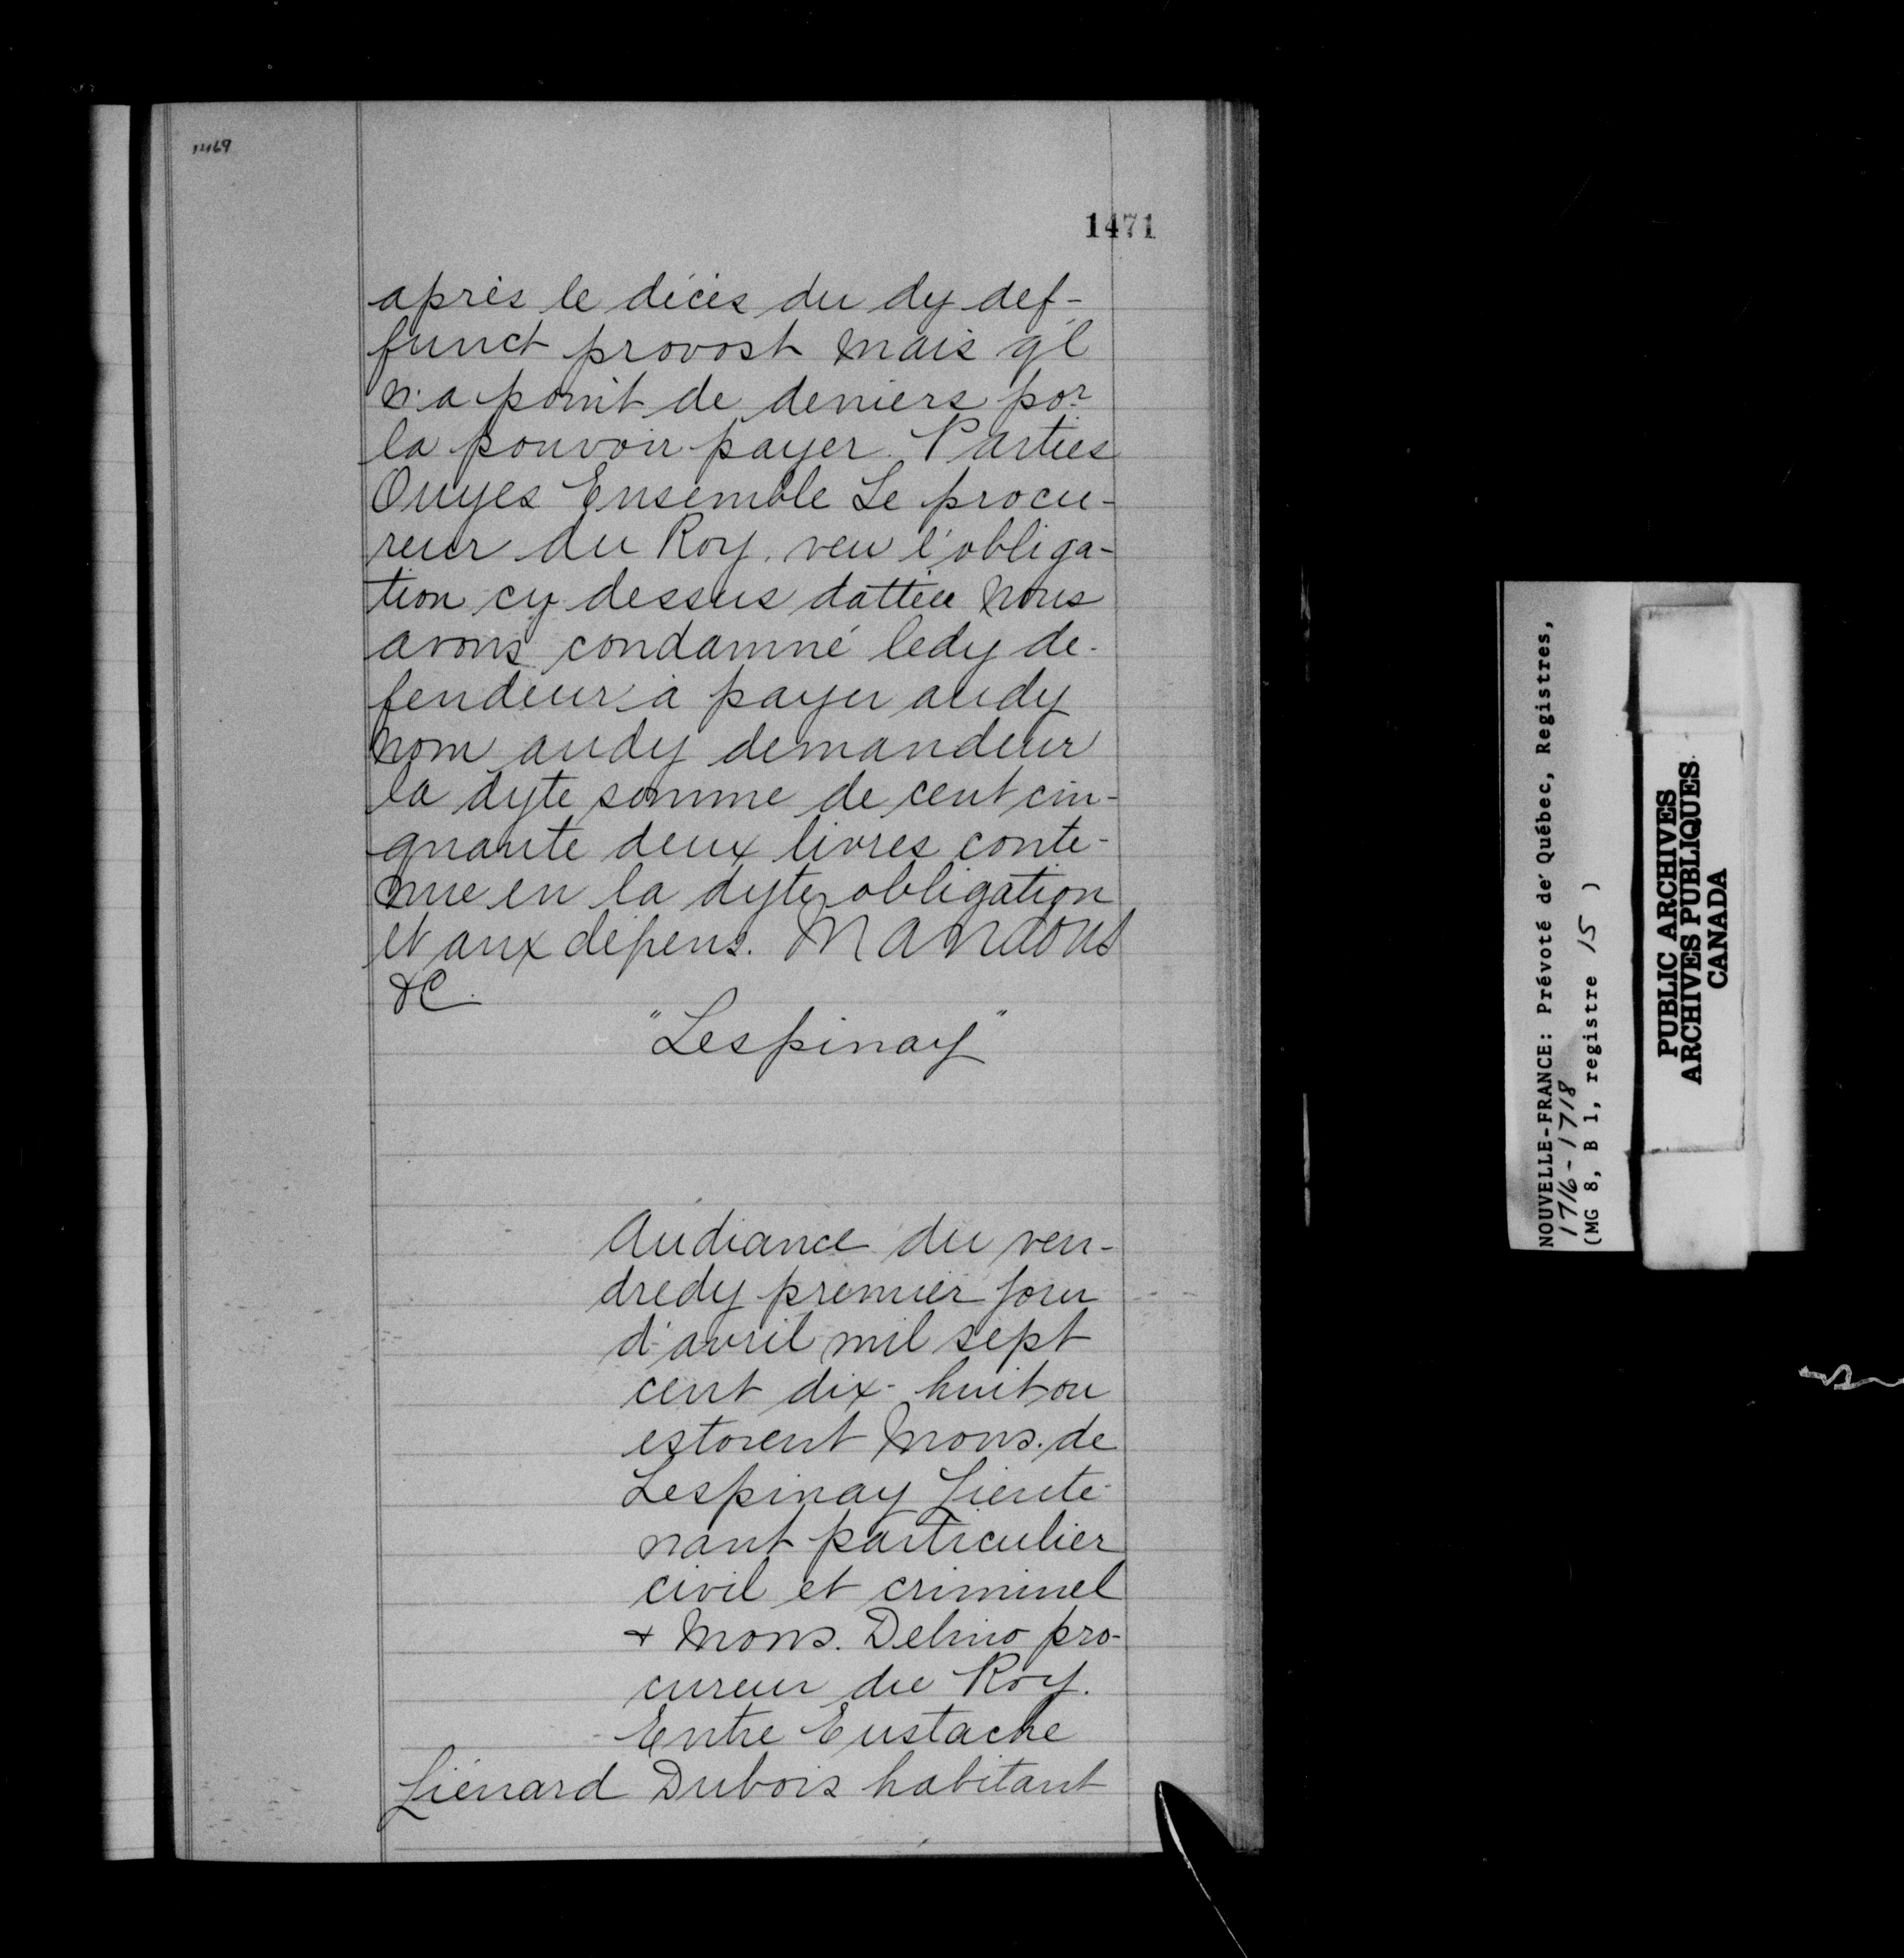 1469
1471
après le décès du dy def-
funct provost mais ql
n'a point de deniers por
la pouvoir payer. Parties
Ouyes Ensemble Le procu-
reur du Roy. veu l'obliga-
tion cy dessus dattée Nous
avons condamné ledy de-
fendeur à payer audy
nom audy demandeur
la dyte somme de cent cin-
quante deux livres conte-
nue en la dyte obligation
et aux dépens. Mandons
&c.
"Lespinay"
Audiance du ven-
dredy premier jour
d'avril mil sept
cent dix-huit ou
estoient Mons. de
Lespinay Lieute-
nant particulier
civil et criminel
& Mons. Delino pro-
cureur du Roy.
Entre Eustache
Liénard Dubois habitant
NOUVELLE-FRANCE: Prévoté de Québec, Registres,
1716-1718
(MG 8, B 1, registre 15 )
PUBLIC ARCHIVES
ARCHIVES PUBLIQUES
CANADA